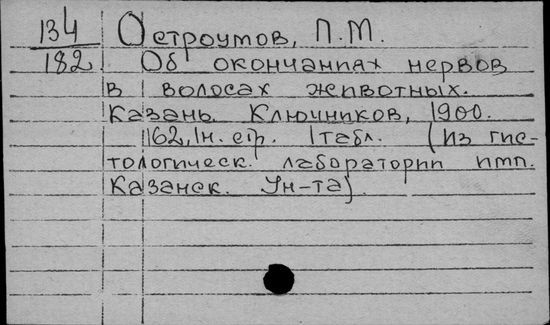 134 Остроумов, П.М.
182 Об окончаниях нервов
в волосах животных.
Казань. Ключников, 1900.
62, 1н. стр. 1 табл. (Из гис-
тологическ. лаборатории имп.
Казанск. Ун-та).